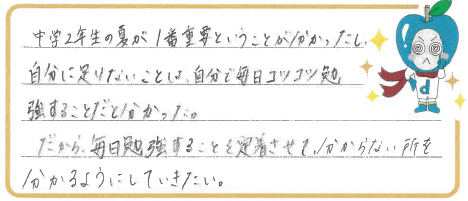 中学2年生の夏が1番重要ということが分かったし、
自分に足りないことは、自分で毎日コツコツ勉
強することだと分かった。
だから、毎日勉強することを定着させて、分からない所を
分かるようにしていきたい。
d